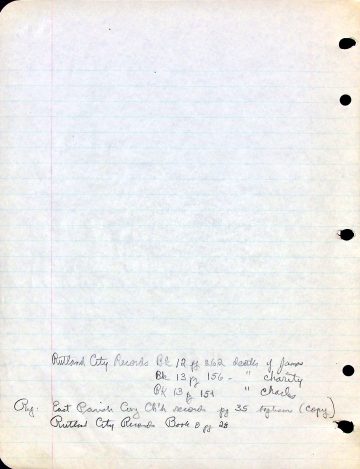 Rutland City Records Bk 12 pg 362 death of James
Bk 13 pg 156 - " Charity
Bk 13 pg 154 " Charles
East Parish Cong Ch'h records pg 35 (copy)
Rutland City Records Book pg 28